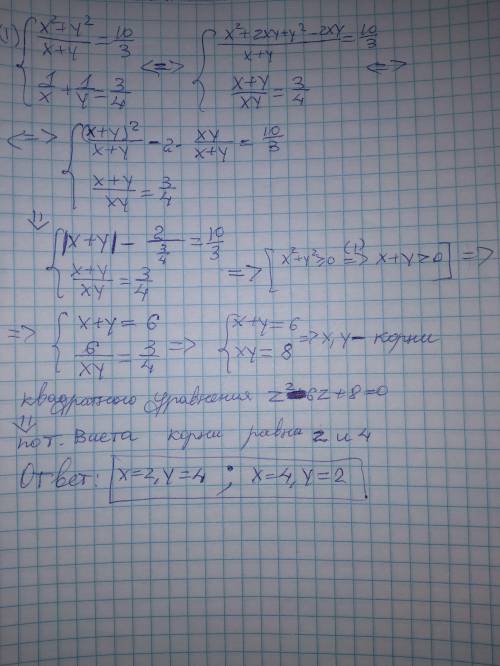 1) { (x²+y²)/(x+y) = 10/3 { (x²+2xy+y²-2xy)/(x+y) = 10/3
1/x + 1/y = 3/4 <=> (x+y)/(xy) = 3/4 <=>
<=> { (x+y)²/(x+y) - 2 · xy/(x+y) = 10/3
(x+y)/(xy) = 3/4
⇓
{ |x+y| - 2/(3/4) = 10/3
(x+y)/(xy) = 3/4 => [x²+y²≥0 (1)=> x+y>0] =>
=> { x+y=6 { x+y=6
6/(xy) = 3/4 => xy=8 => x, y - корни
квадратного уравнения z²-6z+8=0
⇓
по т. Виета корни равна 2 и 4
Ответ: x=2, y=4 ; x=4, y=2